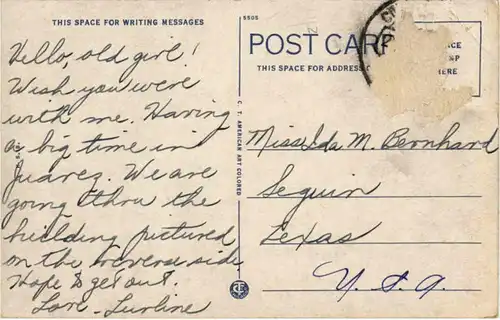 THIS SPACE FOR WRITING MESSAGES
Hello, old girl!
Wish you were
with me. Having
a big time in
Juarez. We are
going thru the
building pictured
on the reverse side
Hope to get out.
Love - Lurline
5505
POST CARD
THIS SPACE FOR ADDRESS
ERE
C. T. AMERICAN ART COLORED
Miss Ida M. Bernhard
Seguin
Texas
U.S.A.